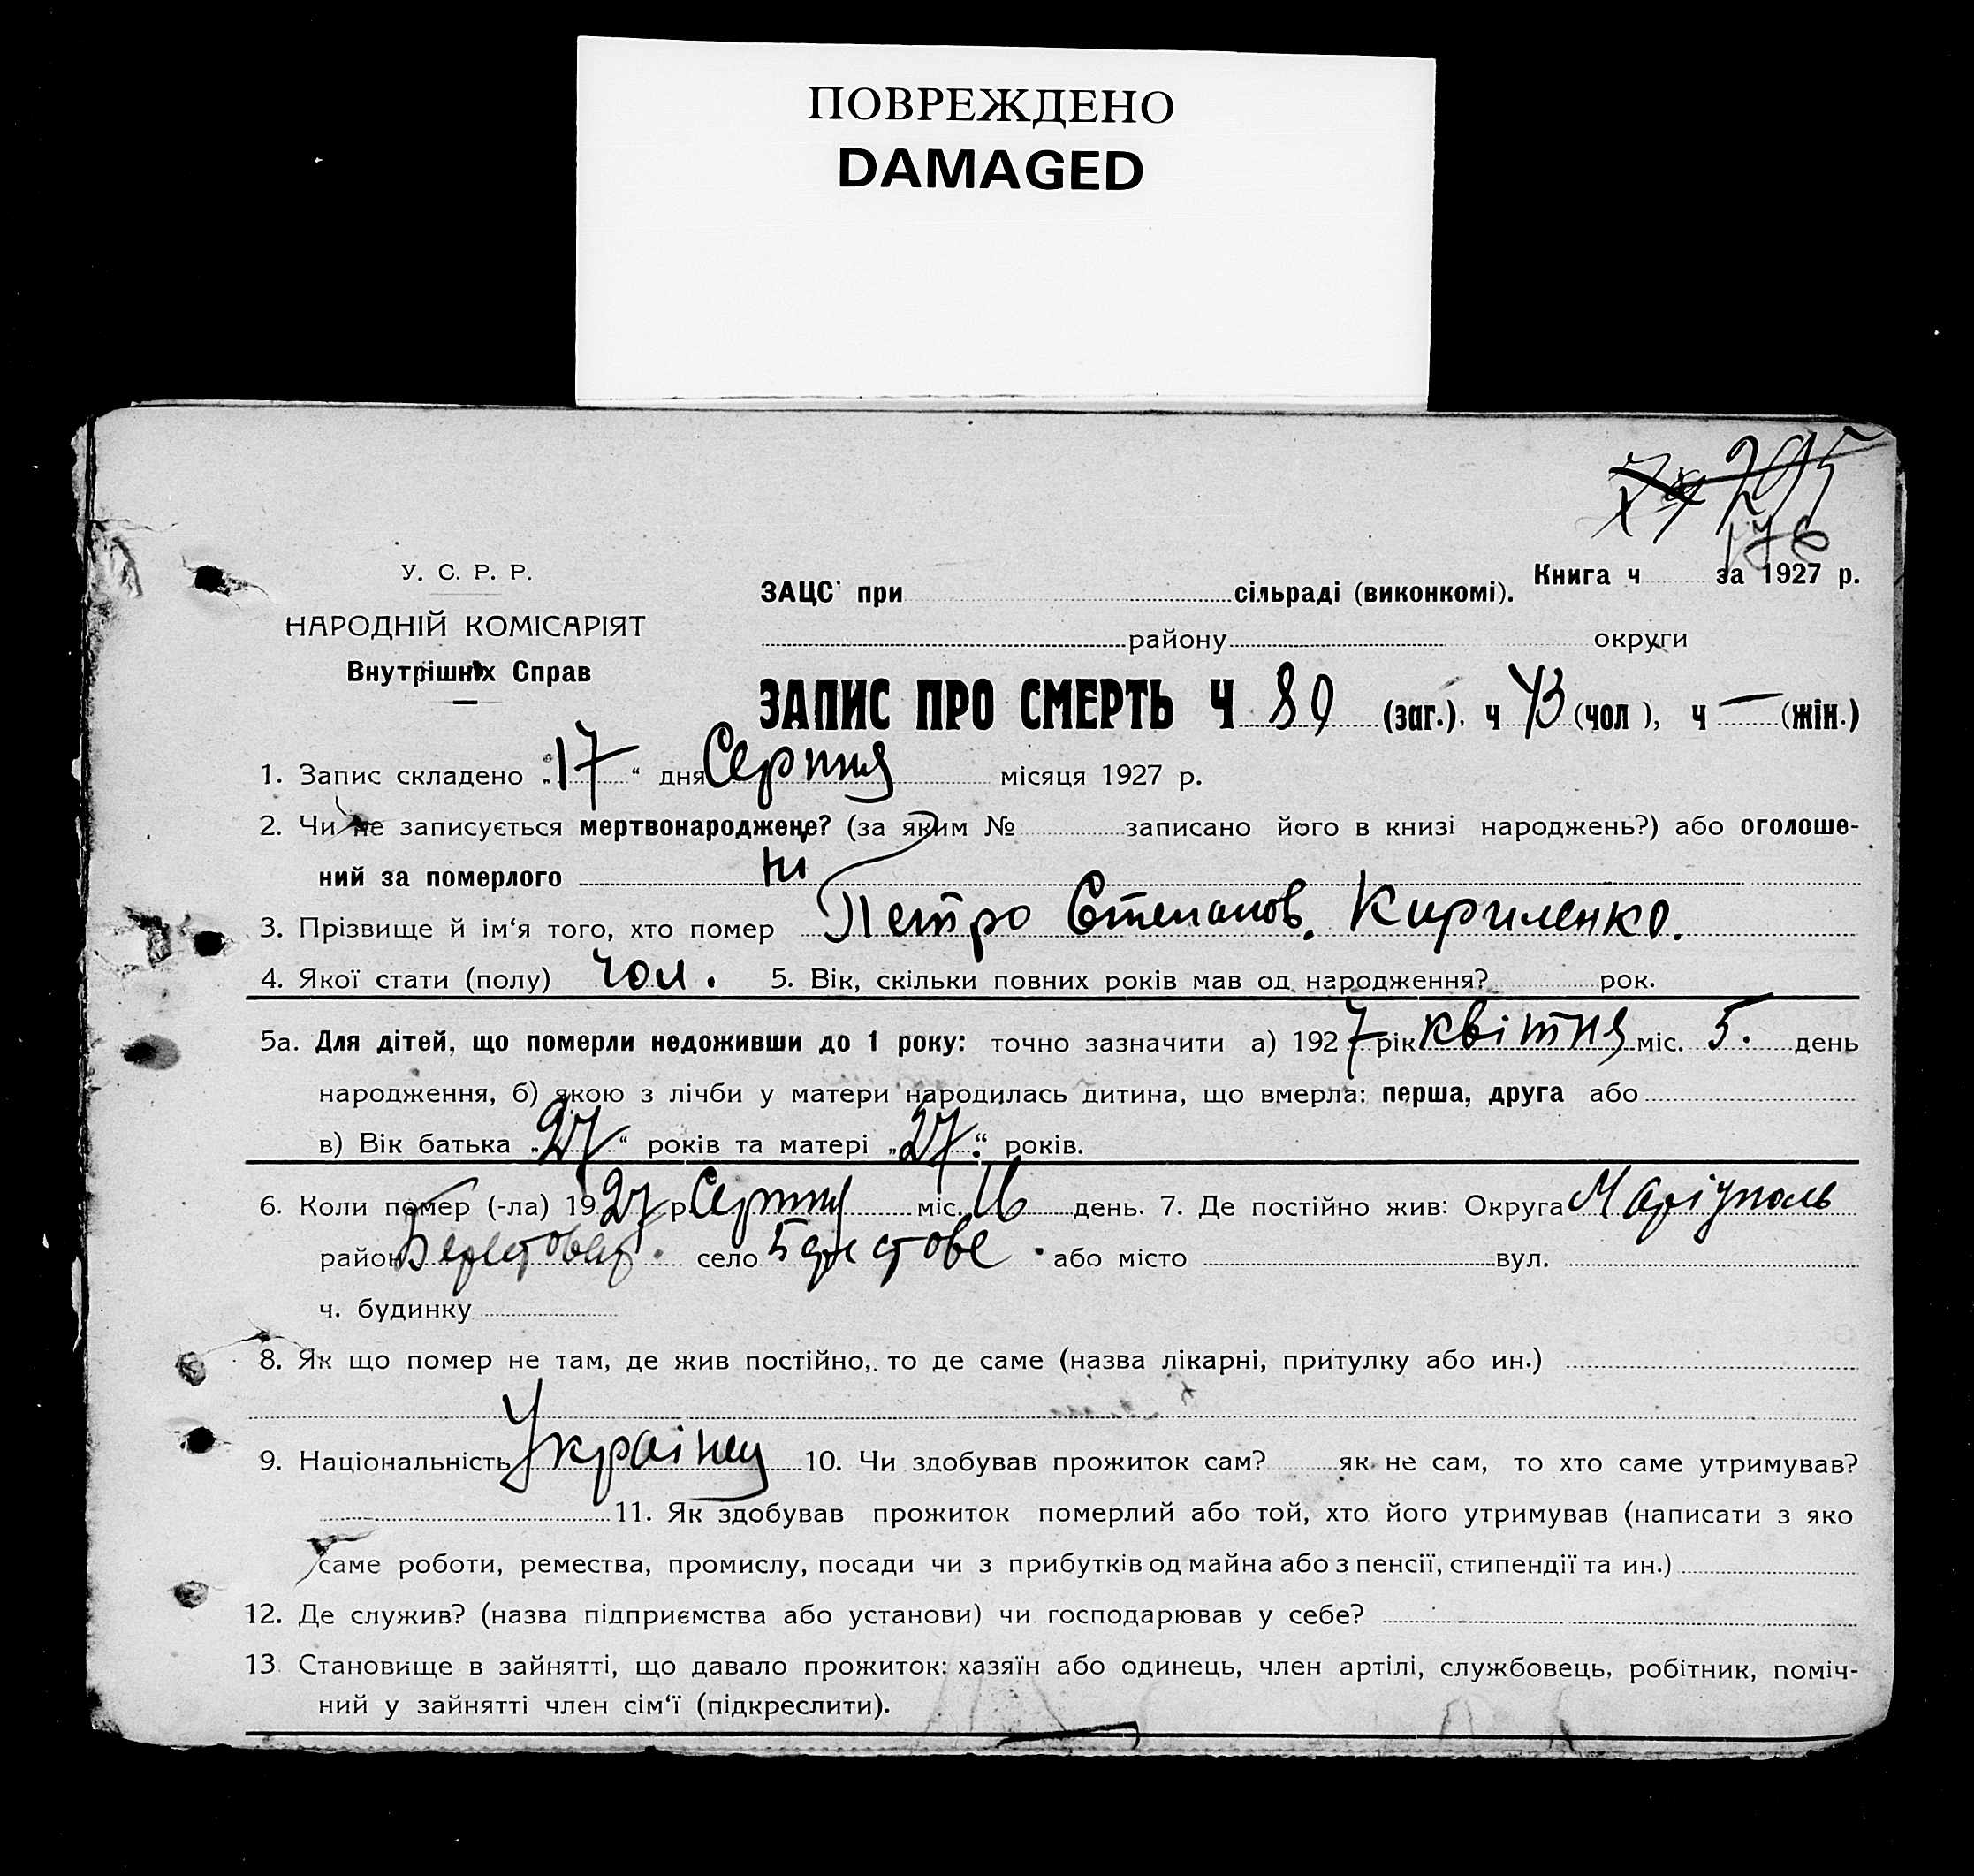 ПОВРЕЖДЕНО
DAMAGED
295
176
У. С. Р. Р.
НАРОДНІЙ КОМІСАРІЯТ
Внутрішніх Справ
Книга ч за 1927 р.
ЗАЦС при сільраді (виконкомі).
району округи
ЗАПИС ПРО СМЕРТЬ Ч 89 (заг.). ч 43 (чол ), ч — (жін.)
1. Запис складено „17“ дня Серпня місяця 1927 р.
2. Чи не записується мертвонароджене? (за яким № записано його в книзі народжень?) або оголоше-
ний за померлого ні
3. Прізвище й ім‘я того, хто помер Петро Степанов. Кириленко.
4. Якої стати (полу) чол. 5. Вік, скільки повних років мав од народження? рок.
5а. Для дітей, що померли недоживши до 1 року: точно зазначити а) 1927 рік квітня міс. 5. день
народження, б) якою з лічби у матери народилась дитина, що вмерла: перша, друга або
в) Вік батька „27“ років та матері „27“ років.
6. Коли помер (-ла) 1927 р. Серпня міс. 16 день. 7. Де постійно жив: Округа Маріуполь
район Берестовер. село Берестове або місто вул.
ч. будинку
8. Як що помер не там, де жив постійно, то де саме (назва лікарні, притулку або ин.)
9. Національність Українец 10. Чи здобував прожиток сам? як не сам, то хто саме утримував?
11. Як здобував прожиток померлий або той, хто його утримував (написати з яко
саме роботи, ремества, промислу, посади чи з прибутків од майна або з пенсії, стипендії та ин.)
12. Де служив? (назва підприємства або установи) чи господарював у себе?
13 Становище в зайнятті, що давало прожиток: хазяїн або одинець, член артілі, службовець, робітник, поміч-
ний у зайнятті член сім‘ї (підкреслити).